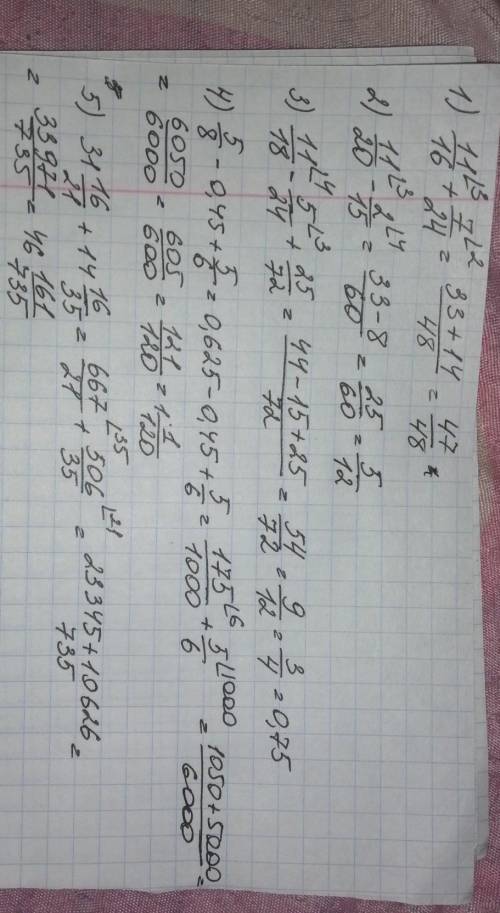 1) 11/16 ∟3 + 7/24 ∟2 = (33+14)/48 = 47/48
2) 11/20 ∟3 - 2/15 ∟4 = (33-8)/60 = 25/60 = 5/12
3) 11/18 ∟4 - 5/24 ∟3 + 25/72 = (44-15+25)/72 = 54/72 = 9/12 = 3/4 = 0,75
4) 5/8 - 0,45 + 5/6 = 0,625 - 0,45 + 5/6 = 175/1000 ∟6 + 5/6 ∟1000 = (1050+5000)/6000 =
= 6050/6000 = 605/600 = 121/120 = 1 1/120
5) 31 16/21 + 14 16/35 = 667/21 ∟35 + 506/35 ∟21 = (23345+10626)/735 =
= 33971/735 = 46 161/735